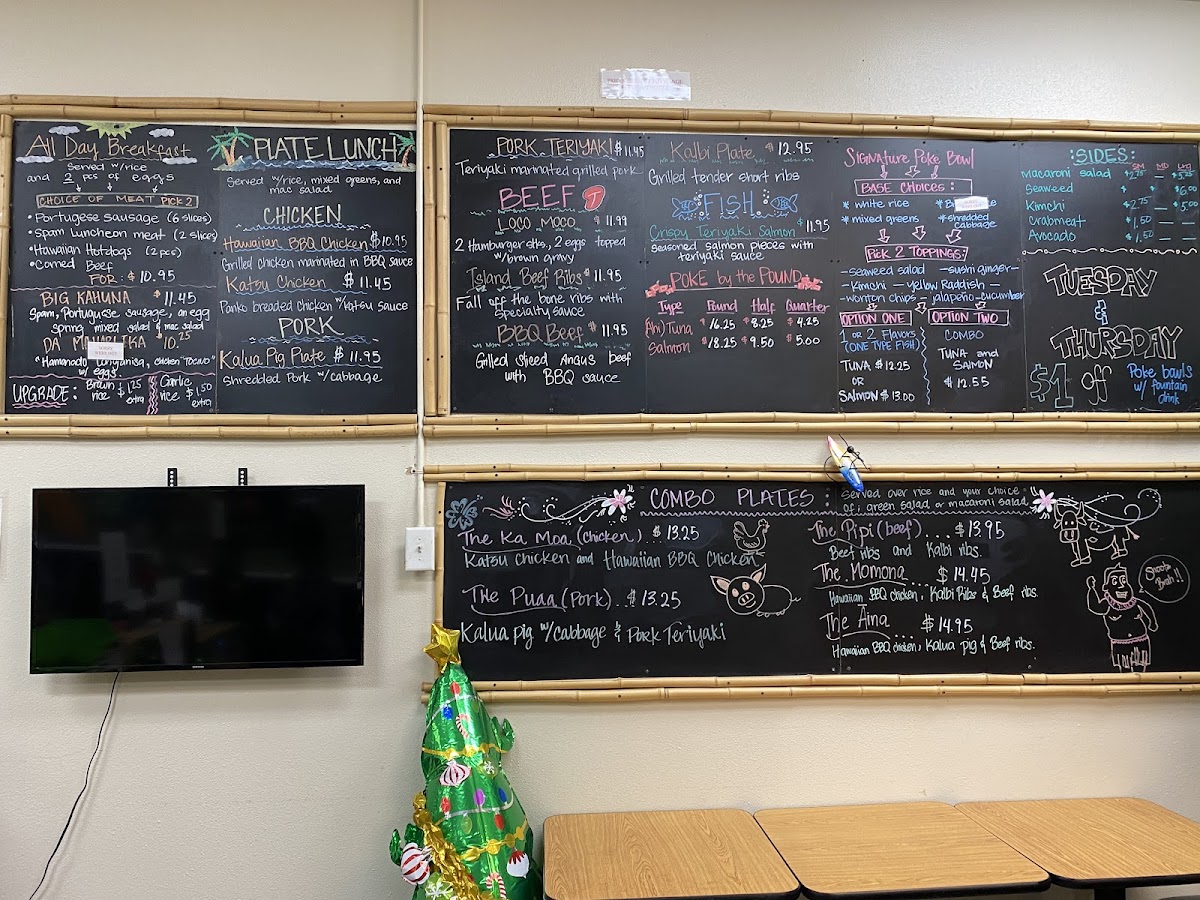 All Day Breakfast
Served w/rice
and 2 pcs of eggs
CHOICE OF MEAT PICK 2
• Portugese sausage (6 slices)
• Spam Luncheon meat (2 slices)
• Hawaiian Hotdogs (2 pcs)
• Corned Beef
FOR: $10.95
BIG KAHUNA $11.45
Spam, Portuguese sausage, an egg
spring mixed salad & mac salad
$10.25
w/ eggs
UPGRADE: Brown rice $1.25 extra
Garlic rice $1.50 extra
PLATE LUNCH
Served w/rice, mixed greens, and
mac salad
CHICKEN
Hawaiian BBQ Chicken $10.95
Grilled chicken marinated in BBQ sauce
Katsu Chicken $11.45
Panko breaded chicken w/katsu sauce
PORK
Kalua Pig Plate $11.95
Shredded Pork w/cabbage
PORK TERIYAKI $11.45
Teriyaki marinated grilled pork
BEEF
LOCO MOCO $11.99
2 Hamburger stks, 2 eggs topped
w/brown gravy
Island Beef Ribs $11.95
Fall off the bone ribs with
specialty sauce
BBQ Beef $11.95
Grilled sliced Angus beef
with BBQ sauce
Kalbi Plate $12.95
Grilled tender short ribs
FISH
Crispy Teriyaki Salmon $11.95
seasoned salmon pieces with
teriyaki sauce
POKE by the POUND
Type Pound Half Quarter
(Ahi) Tuna $16.25 $8.25 $4.25
Salmon $18.25 $9.50 $5.00
Signature Poke Bowl
BASE CHOICES:
* white rice
* mixed greens * shredded cabbage
Pick 2 TOPPINGS:
— seaweed salad — sushi ginger —
— Kimchi — yellow Raddish —
— wonton chips — jalapeño — cucumber
OPTION ONE
1 or 2 Flavors
(ONE TYPE FISH)
TUNA $12.25
OR
SALMON $13.00
OPTION TWO
COMBO
TUNA and
SALMON
$12.55
SIDES:
SM MD LRG
Macaroni salad
Seaweed
Kimchi $2.75
Crabmeat $1.50
Avocado $1.50
TUESDAY
&
THURSDAY
$1 off Poke bowls
w/ fountain
drink
COMBO PLATES: Served over rice and your choice
of: green salad or macaroni salad
The Ka Moa (chicken). $13.25
Katsu Chicken and Hawaiian BBQ Chicken
The Puaa (Pork)..$13.25
Kalua pig w/cabbage & Pork Teriyaki
The Pipi (beef)...$13.95
Beef ribs and Kalbi ribs.
The Momona.... $14.45
Hawaiian BBQ chicken, Kalbi Ribs & Beef ribs.
The Aina .... $14.95
Hawaiian BBQ chicken, Kalua pig & Beef ribs.
Shoots
Brah!!